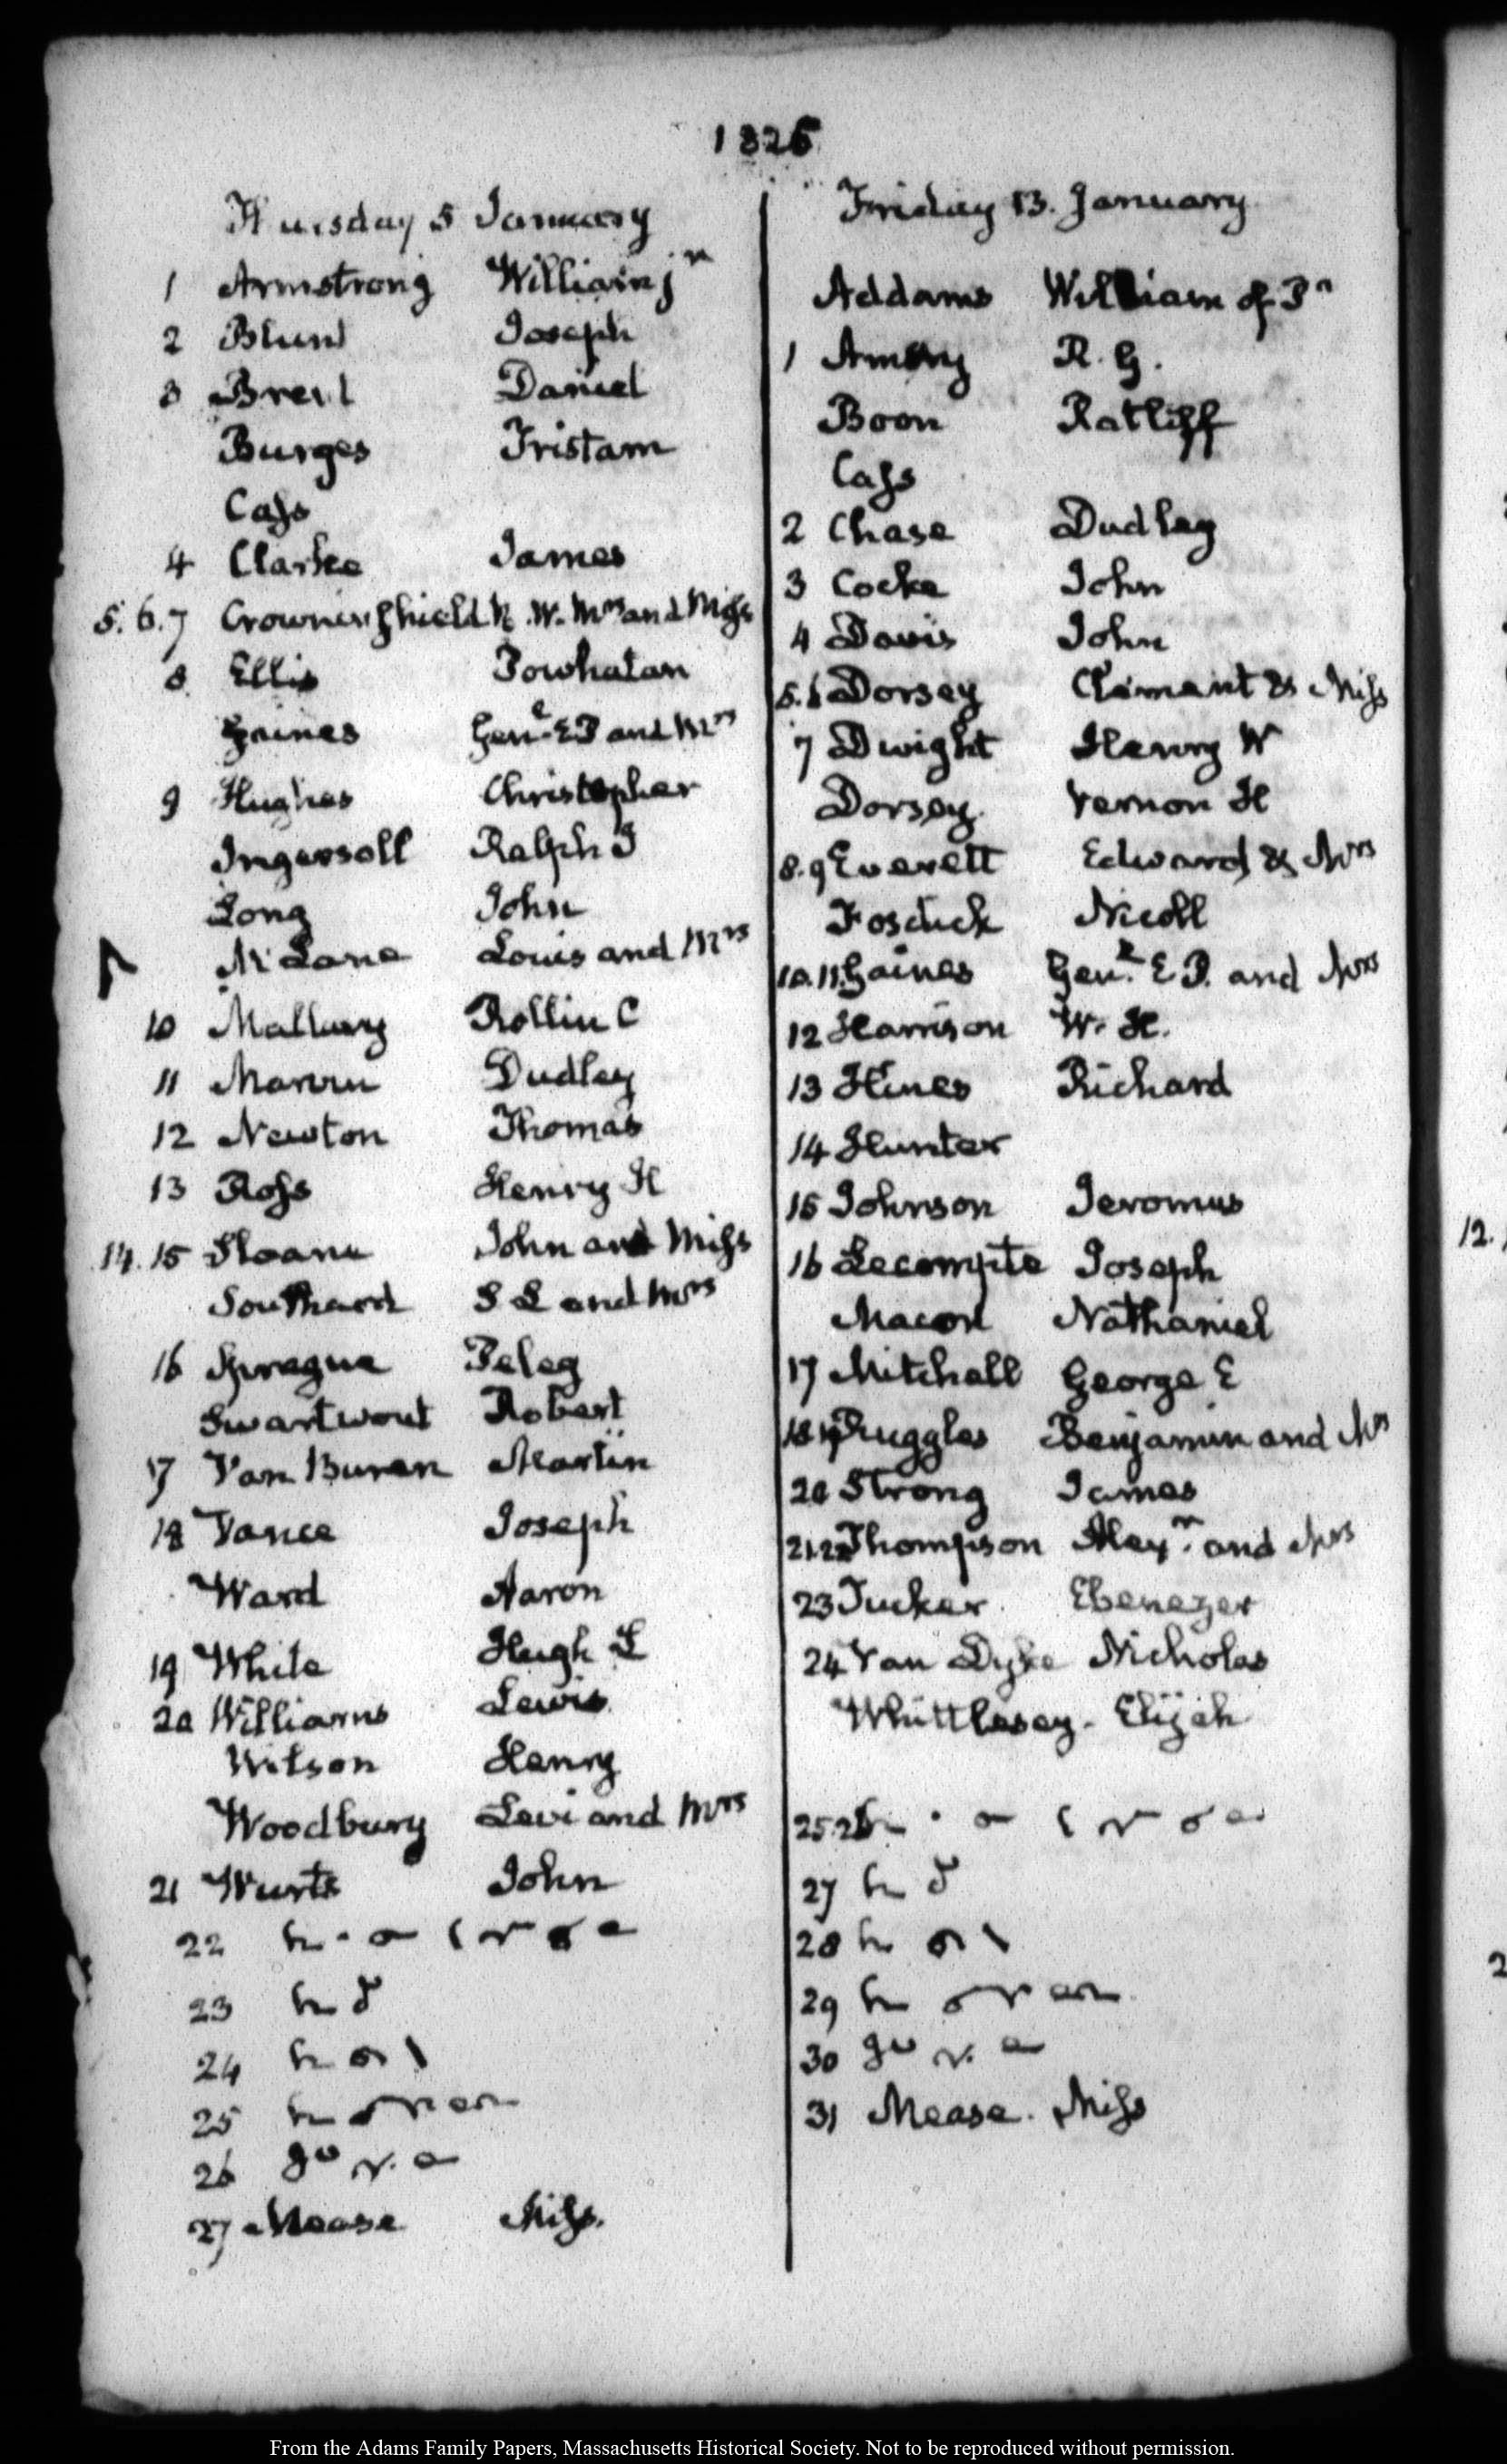 1826
Thursday 5 January
1 Armstrong William jr
2 Blunt Joseph
3 Brent Daniel
Burges Tristam
Cass
4 Clarke James
5. 6. 7 Crowninshield B. W. Mrs and Miss
8 Ellis Powhatan
Gaines Genl. E P and Mrs
9 Hughes Christopher
Ingersoll Ralph I
Long John
McLane Louis and Mrs
10 Mallary Rollin C
11 Marvin Dudley
12 Newton Thomas
13 Ross Henry H
14. 15 Sloane John and Miss
Southard S L and Mrs
16 Sprague Peleg
Swartwout Robert
17 Van Buren Martin
18 Vance Joseph
Ward Aaron
19 White Hugh L
20 Williams Lewis
Wilson Henry
Woodbury Levi and Mrs
21 Wurts John
22
23
24
25
26
27 Mease Miss.
Friday 13. January
Addams William of Pa
1 Amory R. G.
Boon Ratliff
Cass
2 Chase Dudley
3 Cocke John
4 Davis John
5. 6 Dorsey Clement & Miss
7 Dwight Henry W
Dorsey Vernon H
8. 9 Everett Edward & Mrs
Fosdick Nicoll
10. 11. Gaines Genl. E P. and Mrs
12 Harrison W. H.
13 Hines Richard
14 Hunter
15 Johnson Jeromus
16 Lecompte Joseph
Macon Nathaniel
17 Mitchell George E
18 19 Ruggles Benjamin and Mrs
20 Strong James
21. 22 Thompson Alexr. and Mrs
23 Tucker Ebenezer
24 Van Dyke Nicholas
Whittlesey. Elijah
25. 26
27
28
29
30
31 Mease. Miss
12.
2
From the Adams Family Papers, Massachusetts Historical Society. Not to be reproduced without permission.